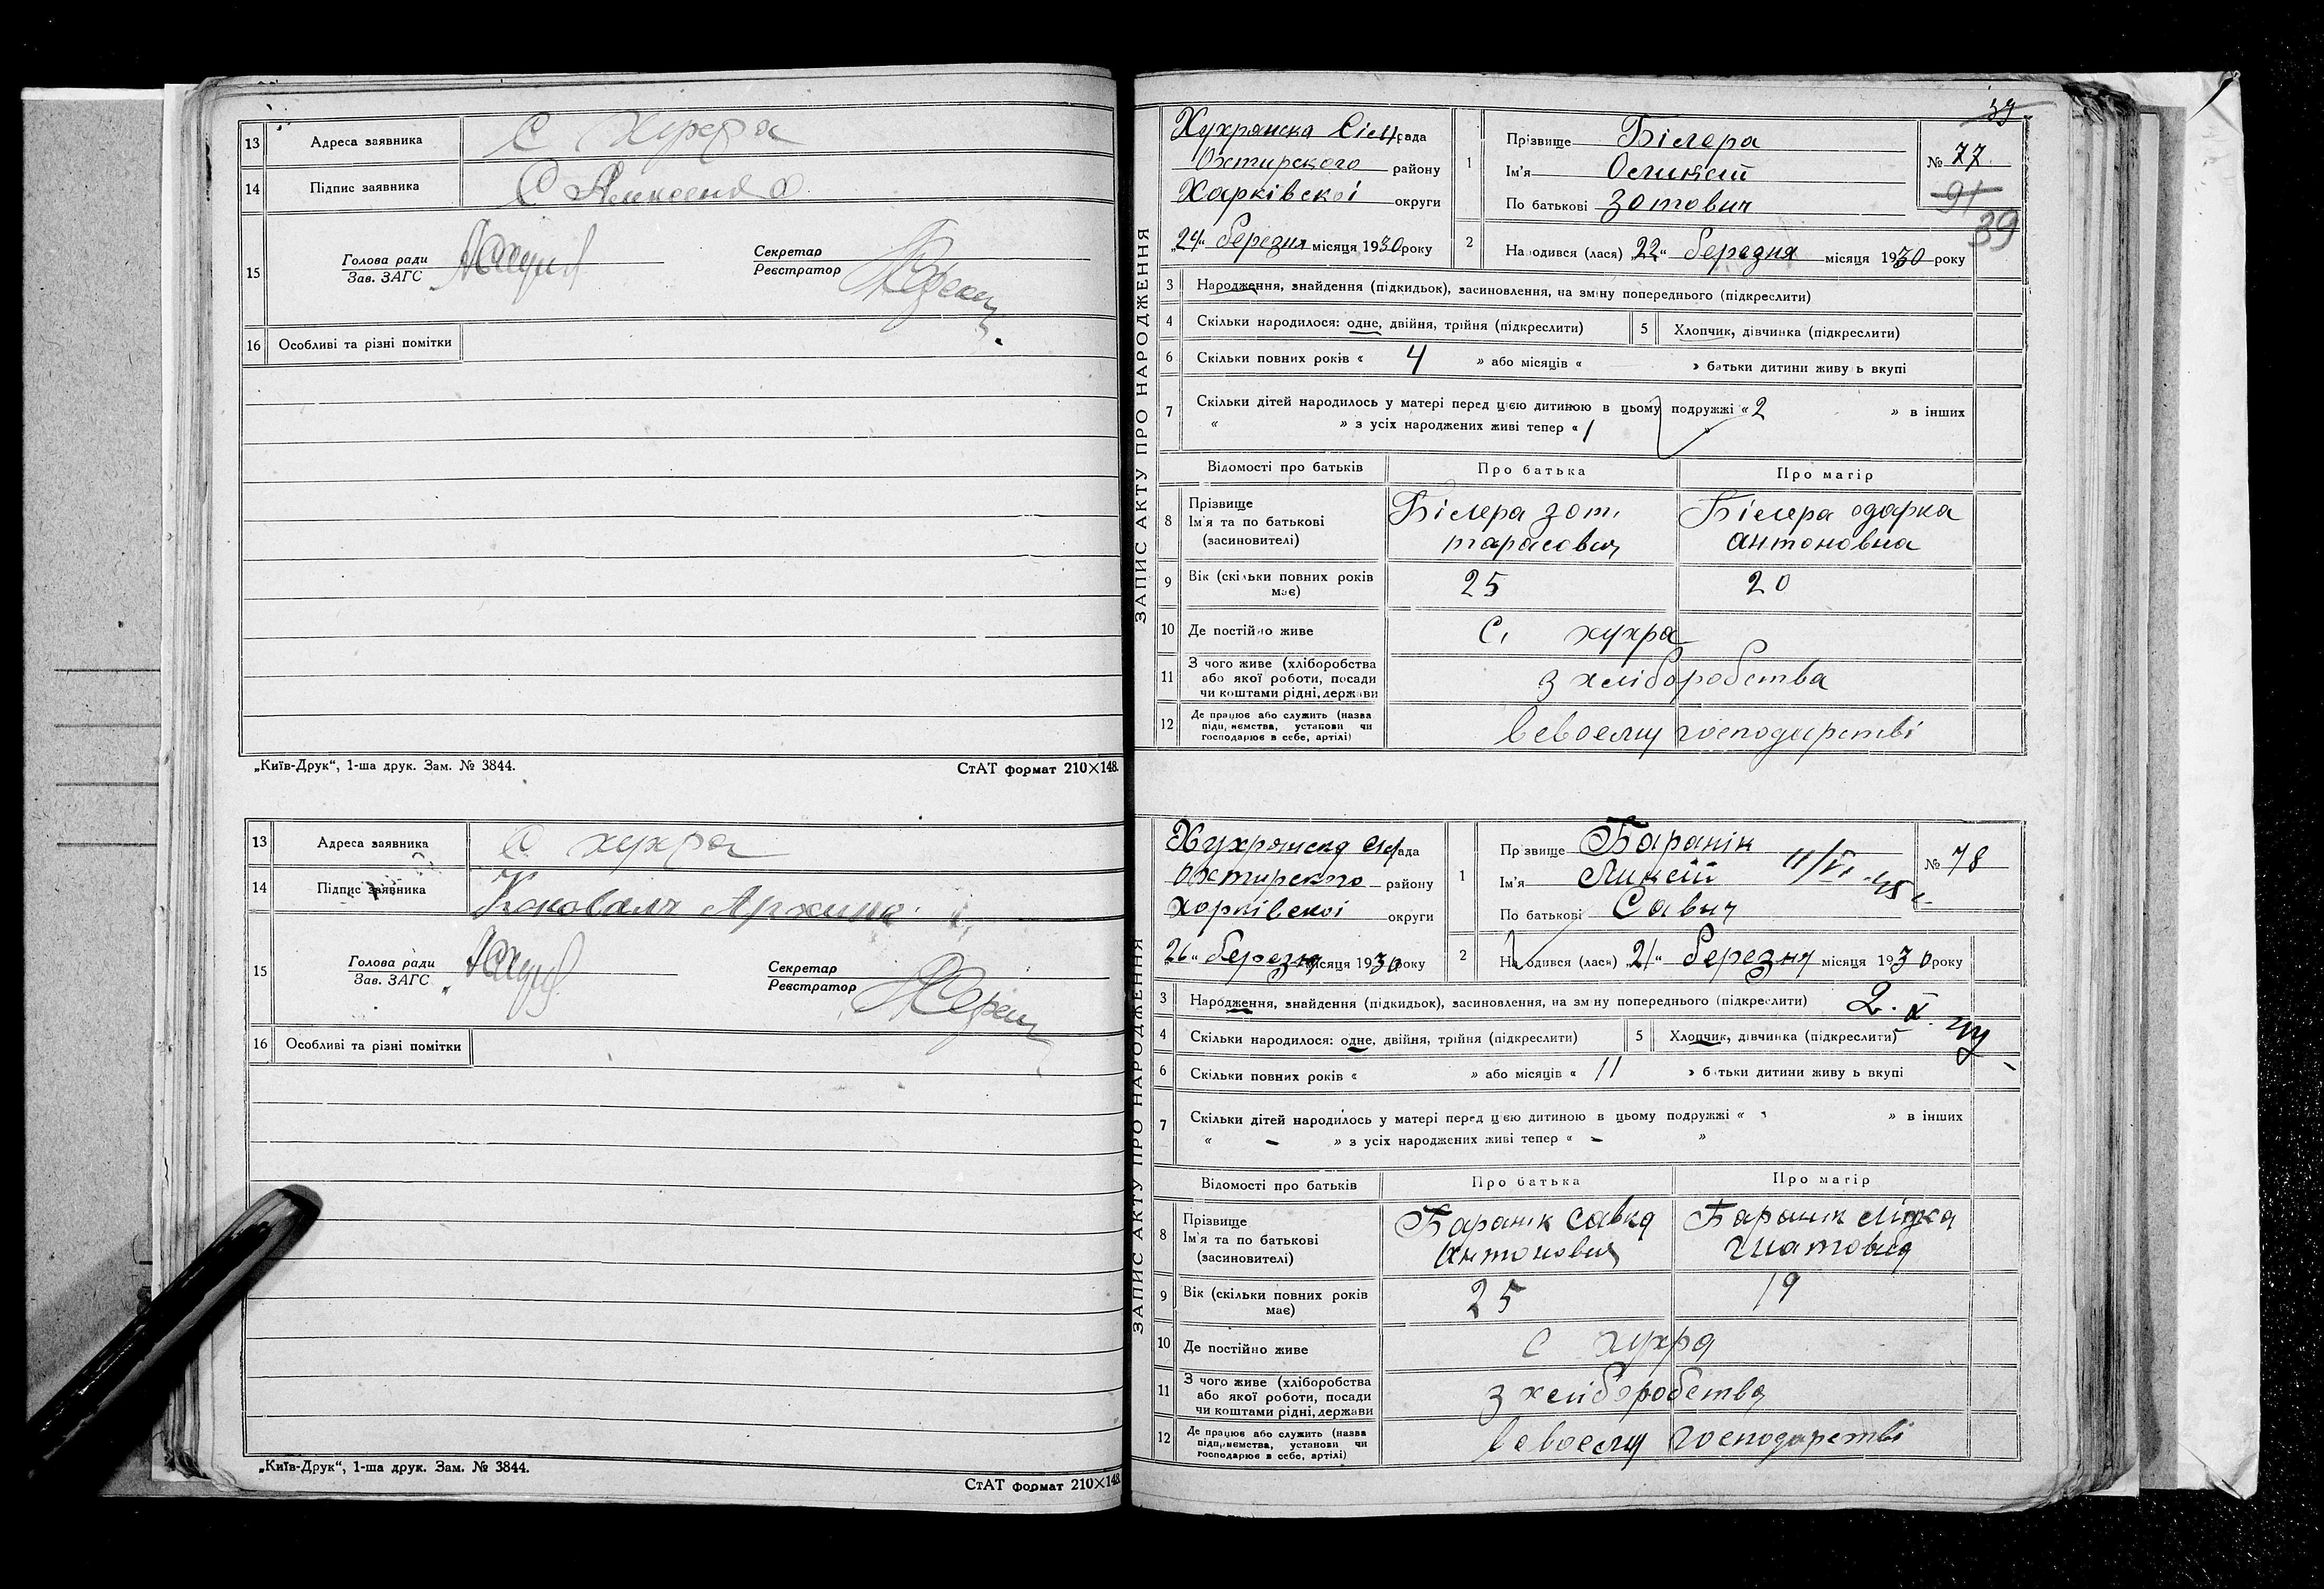 13 Адреса заявника С Хухра
14 Підпис заявника
15 Голова ради
Зав. ЗАГС
Секретар
Реєстратор
16 Особливі та різні помітки
„Київ-Друк“, 1-ша друк. Зам. № 3844. СтАТ формат 210×148.
13 Адреса заявника С хухра
14 Підпис заявника Коковалч Архип
15 Голова ради
Зав. ЗАГС
Секретар
Реєстратор
16 Особливі та різні помітки
„Київ-Друк“, 1-ша друк. Зам. № 3844.
СтАТ формат 210×148.
39
ЗАПИС АКТУ ПРО НАРОДЖЕННЯ
Хухрянска Сільрада
Охтирского району
Харківскоі округи
„24“ березня місяця 1930 року
1 Прізвище Білера
Ім'я
По батькові Зотович
№ 77
91
39
2 Народився (лася) „22“ березня місяця 1930 року
3 Народження, знайдення (підкидьок), засиновлення, на зміну попереднього (підкреслити)
4 Скільки народилося: одне, двійня, трійня (підкреслити) 5 Хлопчик, дівчинка (підкреслити)
6 Скільки повних років « 4 » або місяців « » батьки дитини живуть вкупі
7 Скільки дітей народилось у матері перед цією дитиною в цьому подружжі « 2 » в інших
« » з усіх народжених живі тепер « 1 »
Відомості про батьків Про батька Про матір
8 Прізвище
Ім'я та по батькові
(засиновителі)
Білера Зот.
тарасович
Білера одарка
антоновна
9 Вік (скільки повних років має) 25 20
10 Де постійно живе С. хухра
11 З чого живе (хліборобства
або якої роботи, посади
чи коштами рідні, держави
з хліборобства
12 Де працює або служить (назва
підприємства, установи чи
господарює в себе, артілі)
всвоєму господарстві
ЗАПИС АКТУ ПРО НАРОДЖЕННЯ
Хухрянска рада
Охтирского району
Харківскоі округи
„26“ березня місяця 1930 року
1 Прізвище Баранік
Ім'я Ликсій
По батькові Савич
№ 78
2 Народився (лася) „21“ березня місяця 1930 року
3 Народження, знайдення (підкидьок), засиновлення, на зміну попереднього (підкреслити)
4 Скільки народилося: одне, двійня, трійня (підкреслити) 5 Хлопчик, дівчинка (підкреслити)
6 Скільки повних років « » або місяців « 11 » батьки дитини живуть вкупі
7 Скільки дітей народилось у матері перед цією дитиною в цьому подружжі « » в інших
« - » з усіх народжених живі тепер « - »
Відомості про батьків Про батька Про матір
8 Прізвище
Ім'я та по батькові
(засиновителі)
Баранік Савка
Антонович
Баранік
Гнатовна
9 Вік (скільки повних років має) 25 19
10 Де постійно живе С хухра
11 З чого живе (хліборобства
або якої роботи, посади
чи коштами рідні, держави
з хліборобства
12 Де працює або служить (назва
підприємства, установи чи
господарює в себе, артілі)
всвоєму господарстві